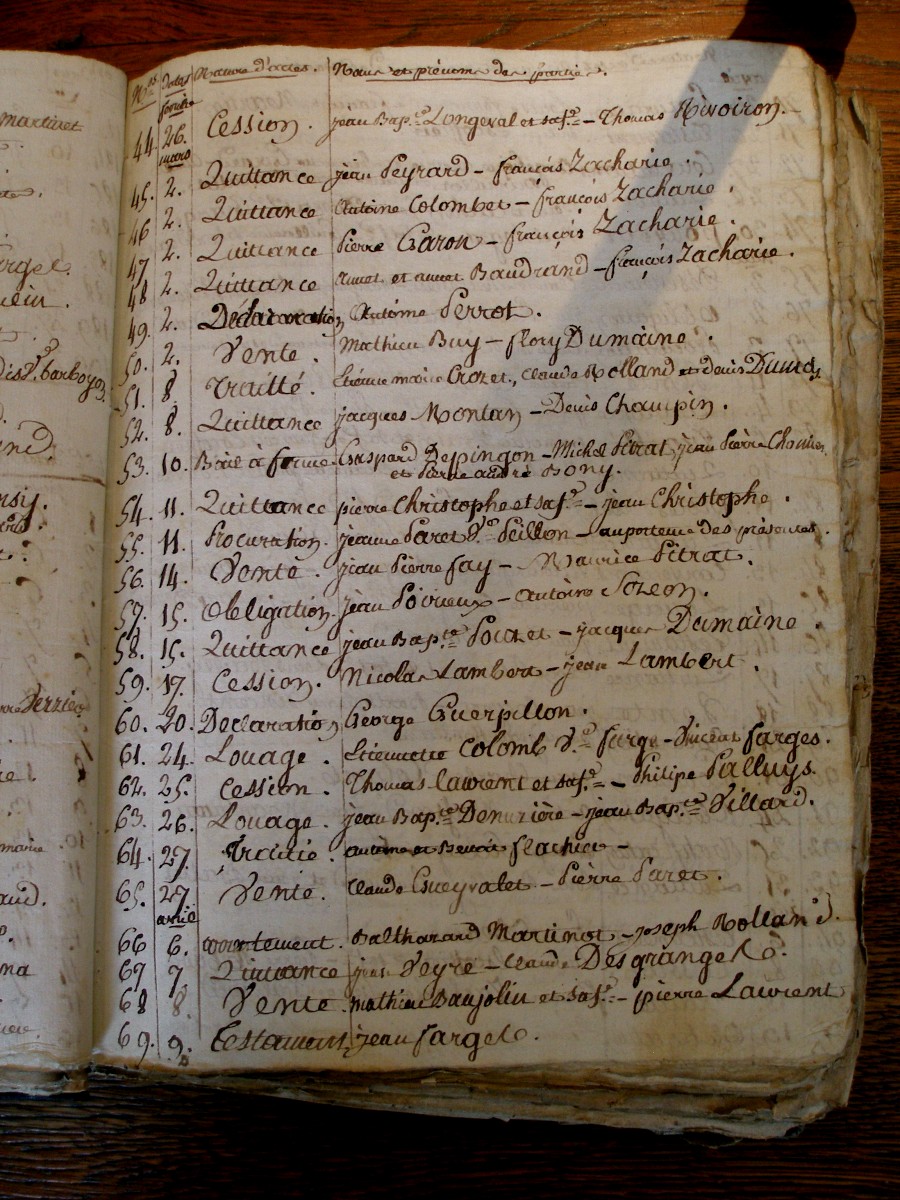 martinet
argel.
N.os Dates Nature d'actes. Noms et prénoms des parties.
février
44. 26. Cession. jean Bap.te Longeval et sa f.e – Thomas Rivoiron.
mars
45. 2. Quittance jean Peyrard – françois Zacharie.
46 2. Quittance Antoine Colombet – françois Zacharie.
47 2. Quittance Pierre Garon – françois Zacharie.
48 2. Quittance et Baudrand – françois Zacharie.
49. 2. Déclaration Antoine Perrot.
50. 2. Vente. Mathieu Buy – flory Dumaine.
51. 8 Traitté. Etienne marie Crozet, Claude Rolland et denis
52. 8. Quittance jacques Montan – Denis Champin.
53. 10. Bail à ferme Gaspard Depingon – Michel Pitrat jean Pierre
et Pierre andré Bony.
54. 11. Quittance pierre Christophe et sa f.e – jean Christophe.
55. 11. Procuration. jeanne Paret V.e Peillon – au porteur des présentes.
56. 14. Vente. jean Pierre fay – Maurice Pitrat.
57. 15. Obligation. jean Poirieux – antoine
58. 15. Quittance jean Bap.te – jacques Dumaine.
59. 17. Cession. Nicolas Lambert – jean Lambert.
60. 20. Declaration George Guerpillon.
61. 24. Louage. Etiennette Colomb V.e farge – Vincent farges.
62. 25. Cession. Thomas Laurent et sa f.e – Philipe Palluys.
63. 26. Louage. jean Bap.te Demurière – jean Bap.te Villard.
64. 27. Traité. antoine et Benoit flachier –
65. 27 Vente. Claude Gueyvalet – Pierre Paret.
avril
66 6. Balthazard Martinot – Joseph Rolland.
67 7 Quittance jean Veyre – Claude Desgranges.
68 8. Vente. mathieu Baujolin et sa f.e – pierre Laurent
69. 9. Testament, jean farges.